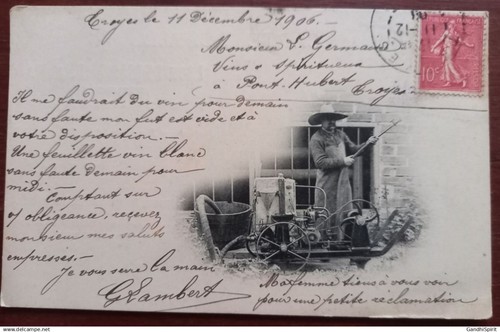 Troyes le 11 Décembre 1906.-
Monsieur P. Germain
Vins & Spiritueux
à Pont Hubert
Troyes
Il me faudrait du vin pour demain
sans faute mon fut est vide et à
votre disposition.-
Une feuillette vin blanc
sans faute demain pour
midi.-
Comptant sur
v/ obligeance, recevez
monsieur mes saluts
empressés.-
Je vous serre la main
GLambert
Ma femme tiens à vous voir
pour une petite réclamation
10c
© GandhiSpirit